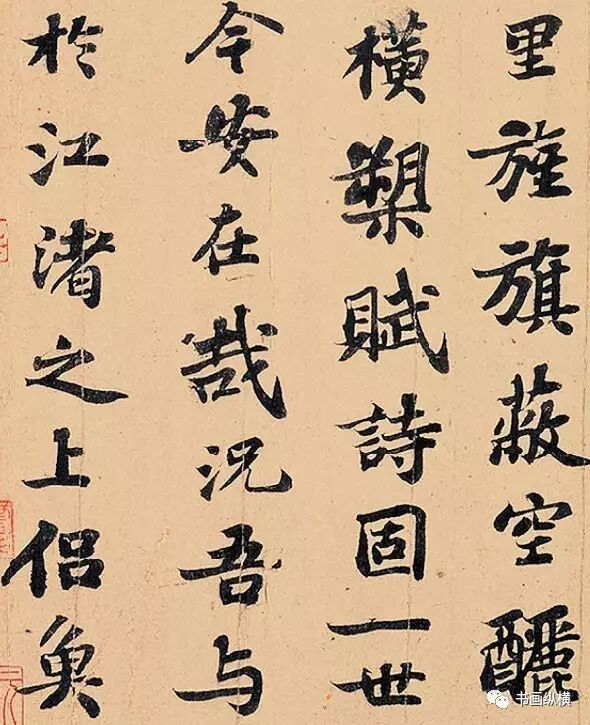 里旌旗蔽空釃
橫槊賦詩固一世
今安在哉況吾与
於江渚之上侶魚
书画纵横